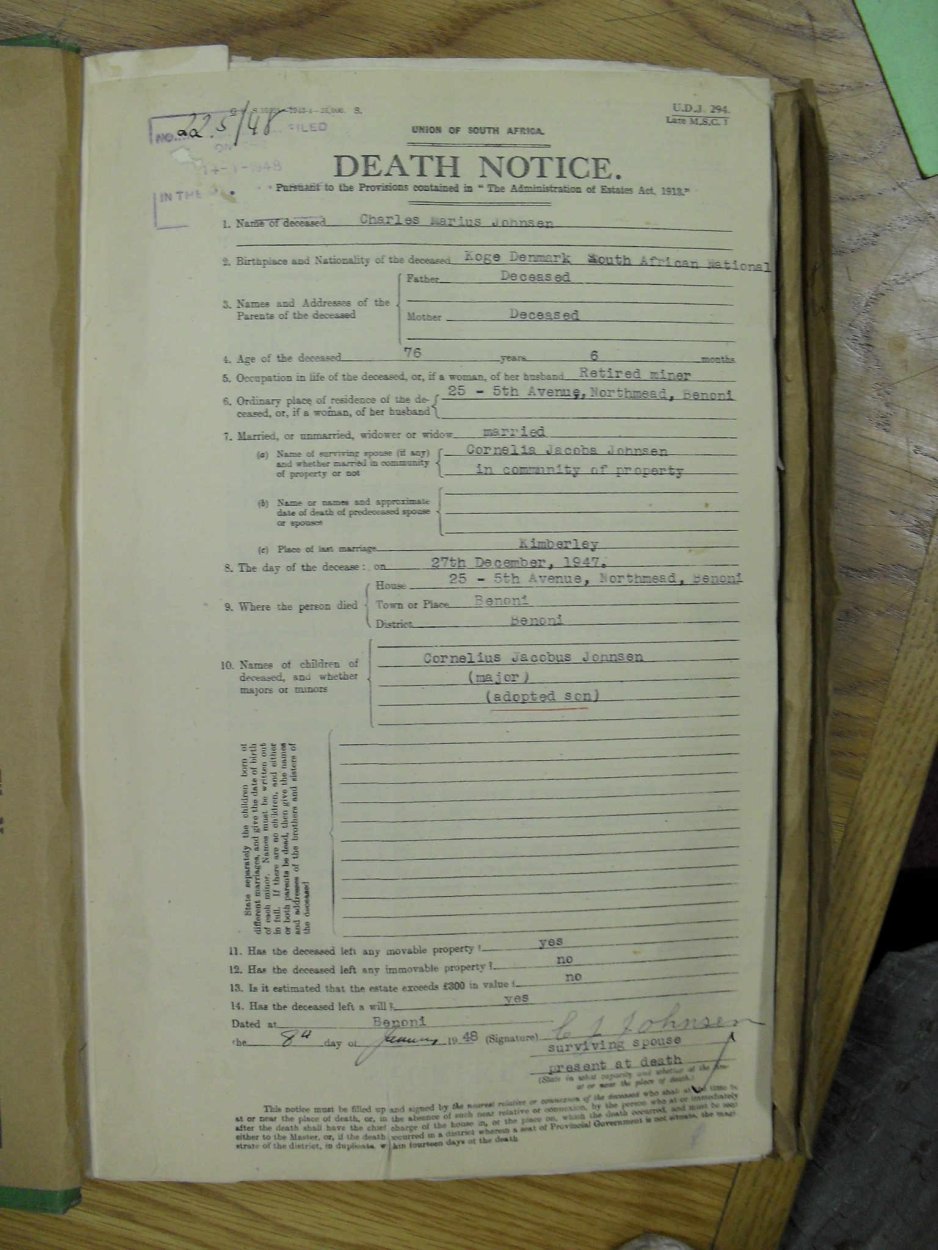 U.D.J. 294.
Late M.S.C. 1
NO. 225/48 FILED
ON
1948
IN THE
UNION OF SOUTH AFRICA.
DEATH NOTICE.
Pursuant to the Provisions contained in "The Administration of Estates Act, 1913."
1. Name of deceased Charles Marius Johnsen
2. Birthplace and Nationality of the deceased Koge Denmark South African National
Father Deceased
3. Names and Addresses of the
Parents of the deceased
Mother Deceased
4. Age of the deceased 76 years 6 months
5. Occupation in life of the deceased, or, if a woman, of her husband Retired miner
6. Ordinary place of residence of the de- 25 - 5th Avenue, Northmead, Benoni
ceased, or, if a woman, of her husband
7. Married, or unmarried, widower or widow married
(a) Name of surviving spouse (if any) Cornelia Jacoba Johnsen
and whether married in community
of property or not in community of property
(b) Name or names and approximate
date of death of predeceased spouse
or spouses
(c) Place of last marriage Kimberley
8. The day of the decease: on 27th December, 1947.
House 25 - 5th Avenue, Northmead, Benoni
9. Where the person died Town or Place Benoni
District Benoni
10. Names of children of Cornelius Jacobus Johnsen
deceased, and whether (major)
majors or minors (adopted son)
State separately the children born of
different marriages, and give the date of birth
of each minor. Names must be written out
in full. If there are no children, and either
or both parents be dead, then give the names
and addresses of the brothers and sisters of
the deceased
11. Has the deceased left any movable property? yes
12. Has the deceased left any immovable property? no
13. Is it estimated that the estate exceeds £300 in value? no
14. Has the deceased left a will? yes
Dated at Benoni
the 8th day of January 1948 (Signature) C J Johnsen
surviving spouse
present at death
(State in what capacity and whether at the time
at or near the place of death.)
This notice must be filled up and signed by the nearest relative or connexion of the deceased who shall at the time be
at or near the place of death, or, in the absence of such near relative or connexion, by the person who at or immediately
after the death shall have the chief charge of the house in, or the place on, which the death occurred, and must be sent
either to the Master, or, if the death occurred in a district wherein a seat of Provincial Government is not situate, the magi-
strate of the district, in duplicate, within fourteen days of the death